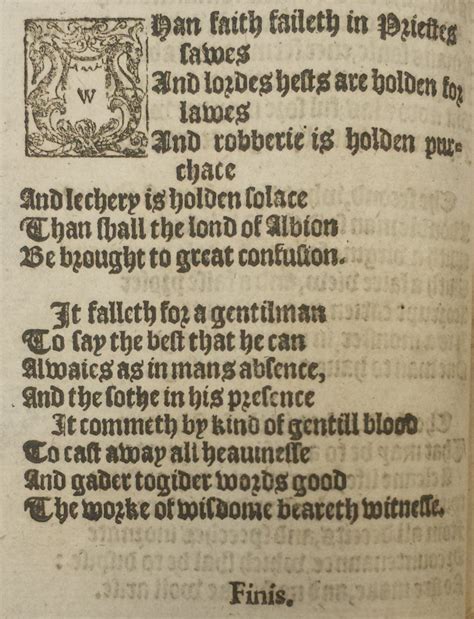 WHan faith faileth in Priestes
sawes
And lordes hests are holden for
lawes
And robberie is holden pur-
chace
And lechery is holden solace
Than shall the lond of Albion
Be brought to great confusion.
It falleth for a gentilman
To say the best that he can
Alwaies as in mans absence,
And the sothe in his presence
It commeth by kind of gentill blood
To cast away all heauinesse
And gader togider words good
The worke of wisdome beareth witnesse.
Finis.